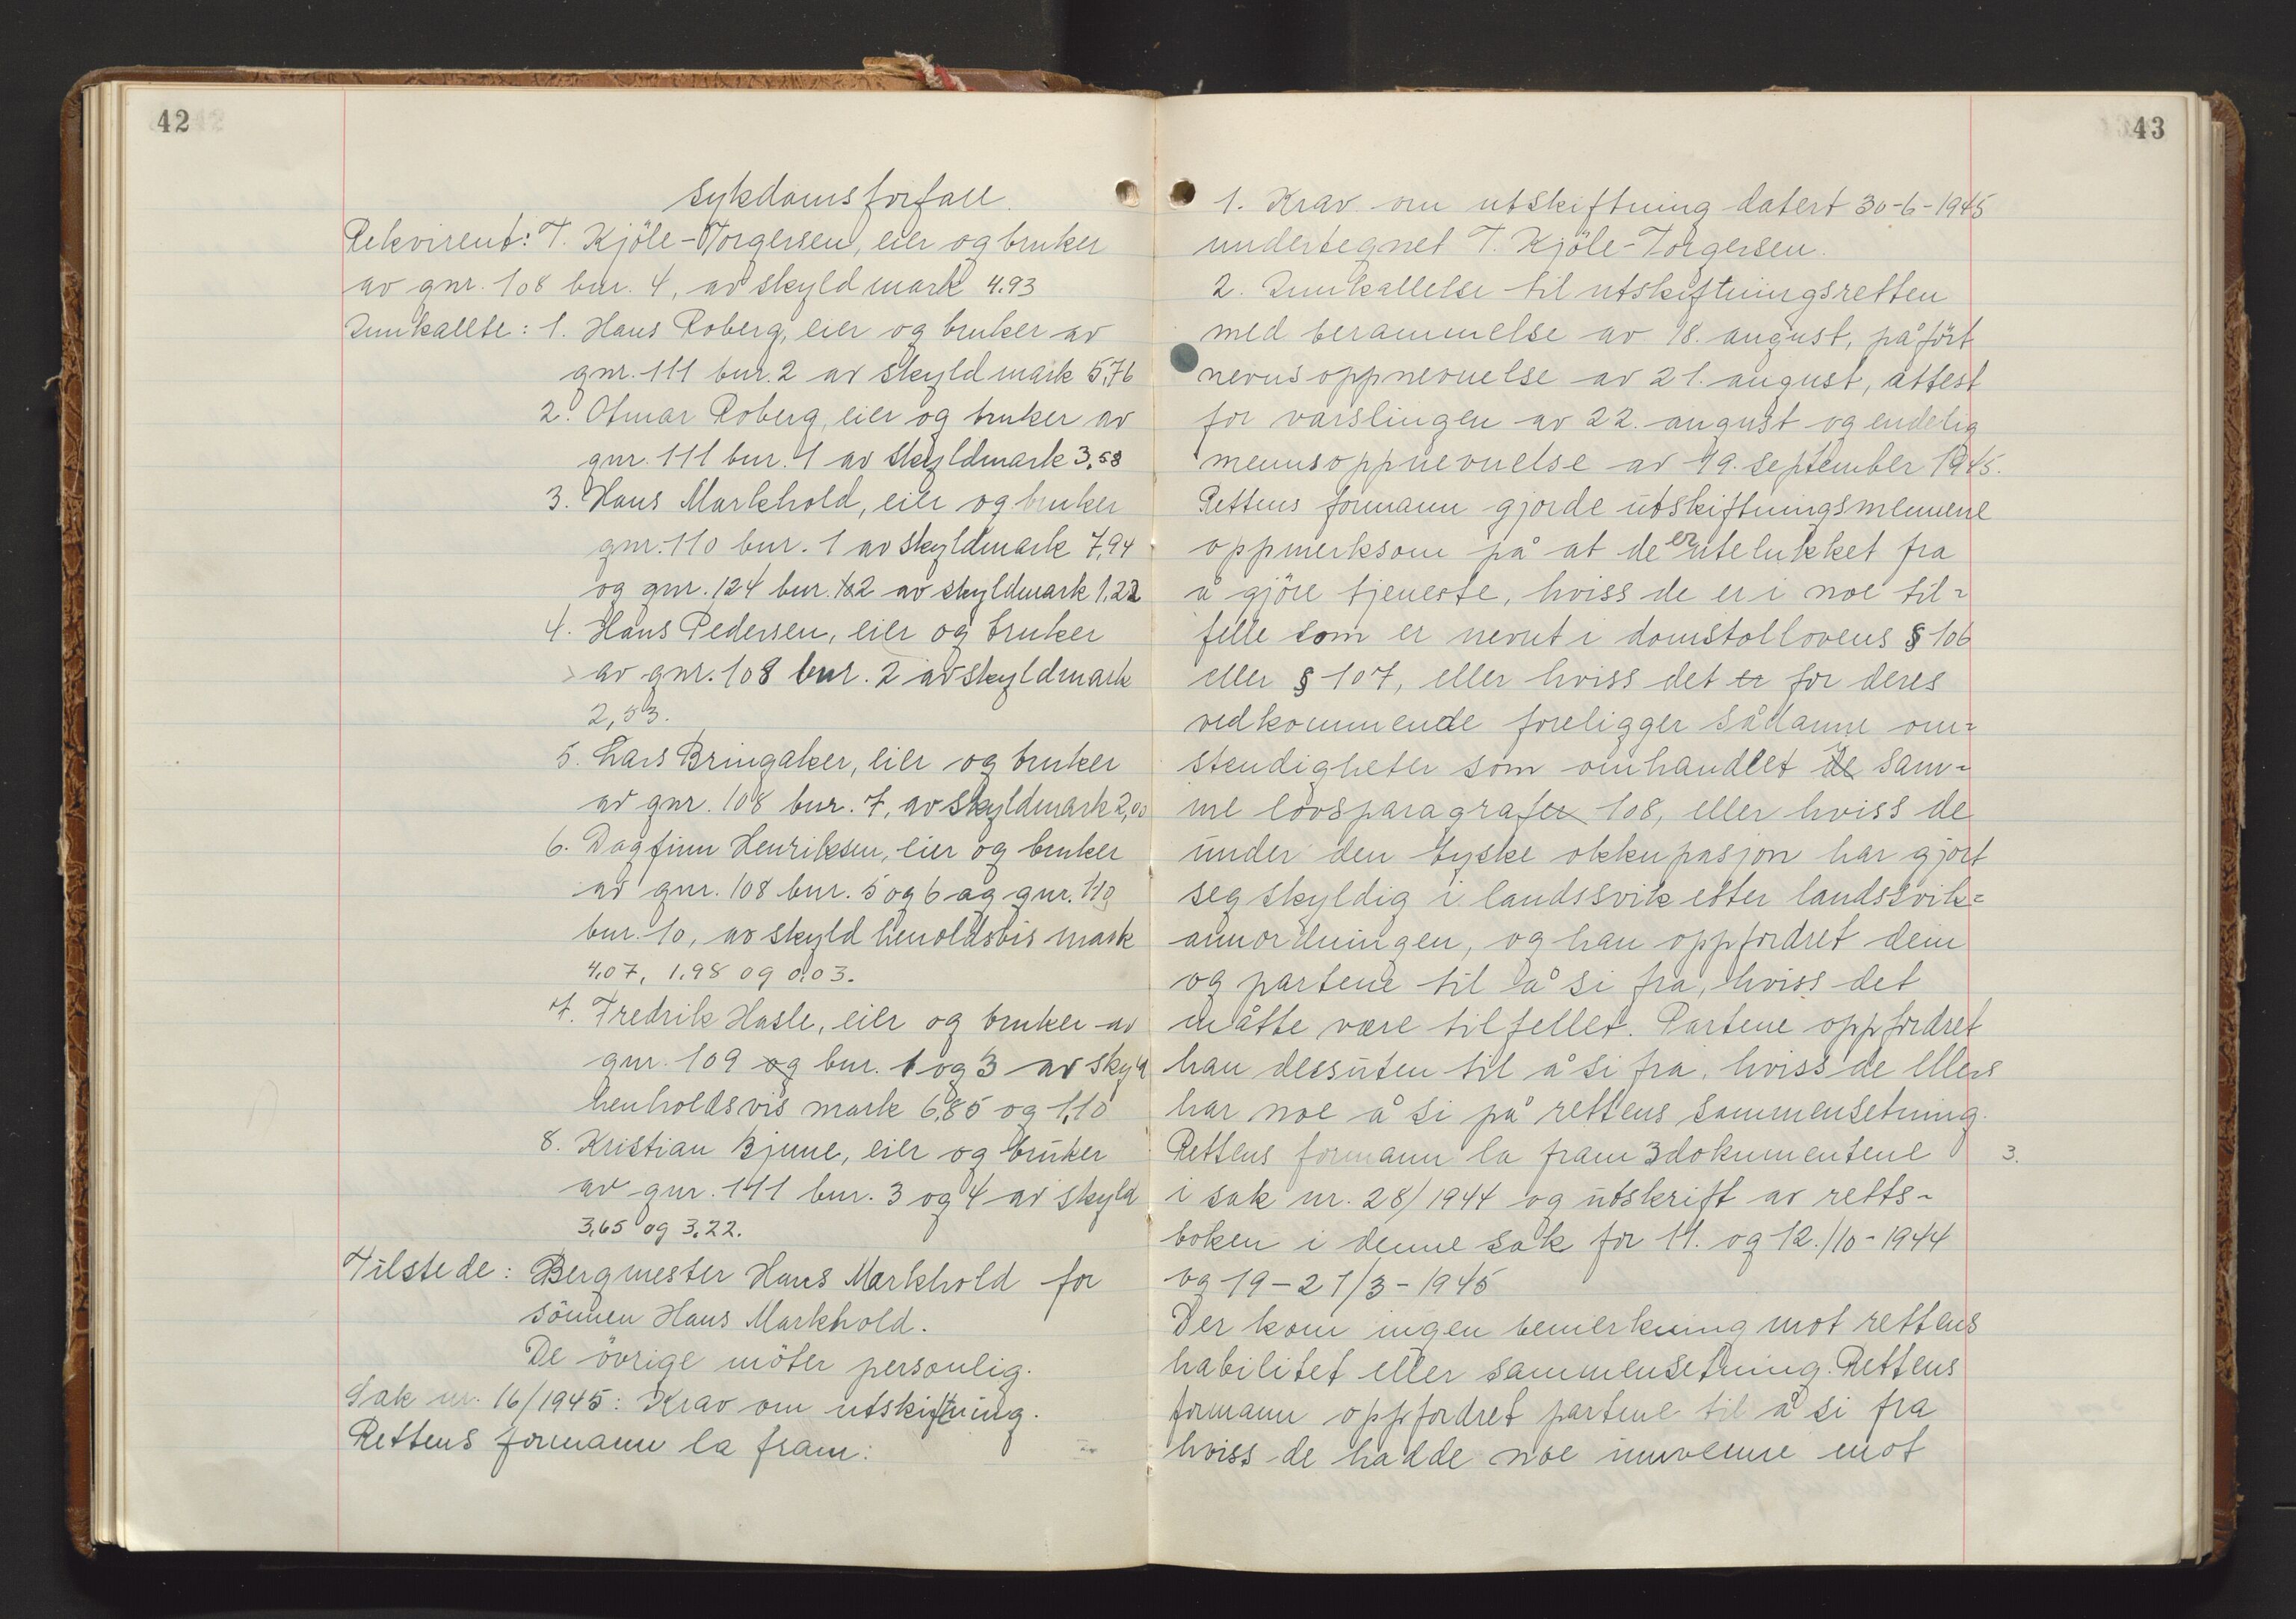 42
sykdomsforfall.
Rekvirent: T. Kjöle-Torgersen, eier og bruker
av gnr. 108 bnr. 4, av skyld mark 4.93
Innkallte: 1. Hans Roberg, eier og bruker av
gnr. 111 bnr. 2 av skyld mark 5,76
2. Otmar Roberg, eier og bruker av
gnr. 111 bnr. 1 av skyldmark 3,58
3. Hans Markhold, eier og bruker
gnr. 110 bnr. 1 av skyldmark 7,94
og gnr. 124 bnr. 2 av skyldmark 1,22
4. Hans Pedersen, eier og bruker
av gnr. 108 bnr. 2 av skyldmark
2,53.
5. Lars Bringaker, eier og bruker
av gnr. 108 bnr. 7, av skyldmark 2,00
6. Dagfinn Henriksen, eier og bruker
av gnr. 108 bnr. 5 og 6 og gnr. 110
bnr. 10, av skyld henoldsvis mark
4,07, 1,98 og 0,03.
7. Fredrik Hasle, eier og bruker av
gnr. 109 og bnr. 1 og 3 av skyld
henholdsvis mark 6,85 og 1,10
8. Kristian Bjune, eier og bruker
av gnr. 111 bnr. 3 og 4 av skyld
3,65 og 3,22.
Tilstede: Bergmester Hans Markhold for
sönnen Hans Markhold.
De övrige möter personlig.
Sak nr. 16/1945: Krav om utskiftning.
Rettens formann la fram:
43
1. Krav om utskiftning datert 30-6-1945
undertegnet T. Kjöle-Torgersen.
2. Innkallelse til utskiftningsretten
med berammelse av 18. august, påfört
nevnsoppnevnelse av 21. august, attest
for varslingen av 22. august og endelig
mennsoppnevnelse av 19. september 1945.
Rettens formann gjorde utskiftningsmennene
oppmerksom på at de er utelukket fra
å gjöre tjeneste, hviss de er i noe til-
felle som er nevnt i domstollovens § 106
eller § 107, eller hviss det er for deres
vedkommende foreligger sådanne om-
stendigheter som omhandlet de sam-
me lovsparagrafer 108, eller hviss de
under den tyske okkupasjon har gjort
seg skyldig i landssvik etter landssvik-
anordningen, og han oppfordret dem
og partene til å si fra, hviss det
måtte være tilfellet. Partene oppfordret
han dessuten til å si fra, hviss de ellers
har noe å si på rettens sammensetning.
Rettens formann la fram 3 dokumentene 3.
i sak nr. 28/1944 og utskrift av retts-
boken i denne sak for 11. og 12./10-1944
og 19-21/3-1945
Der kom ingen bemerkning mot rettens
habilitet eller sammensetning. Rettens
formann oppfordret partene til å si fra
hviss de hadde noe innvenne mot